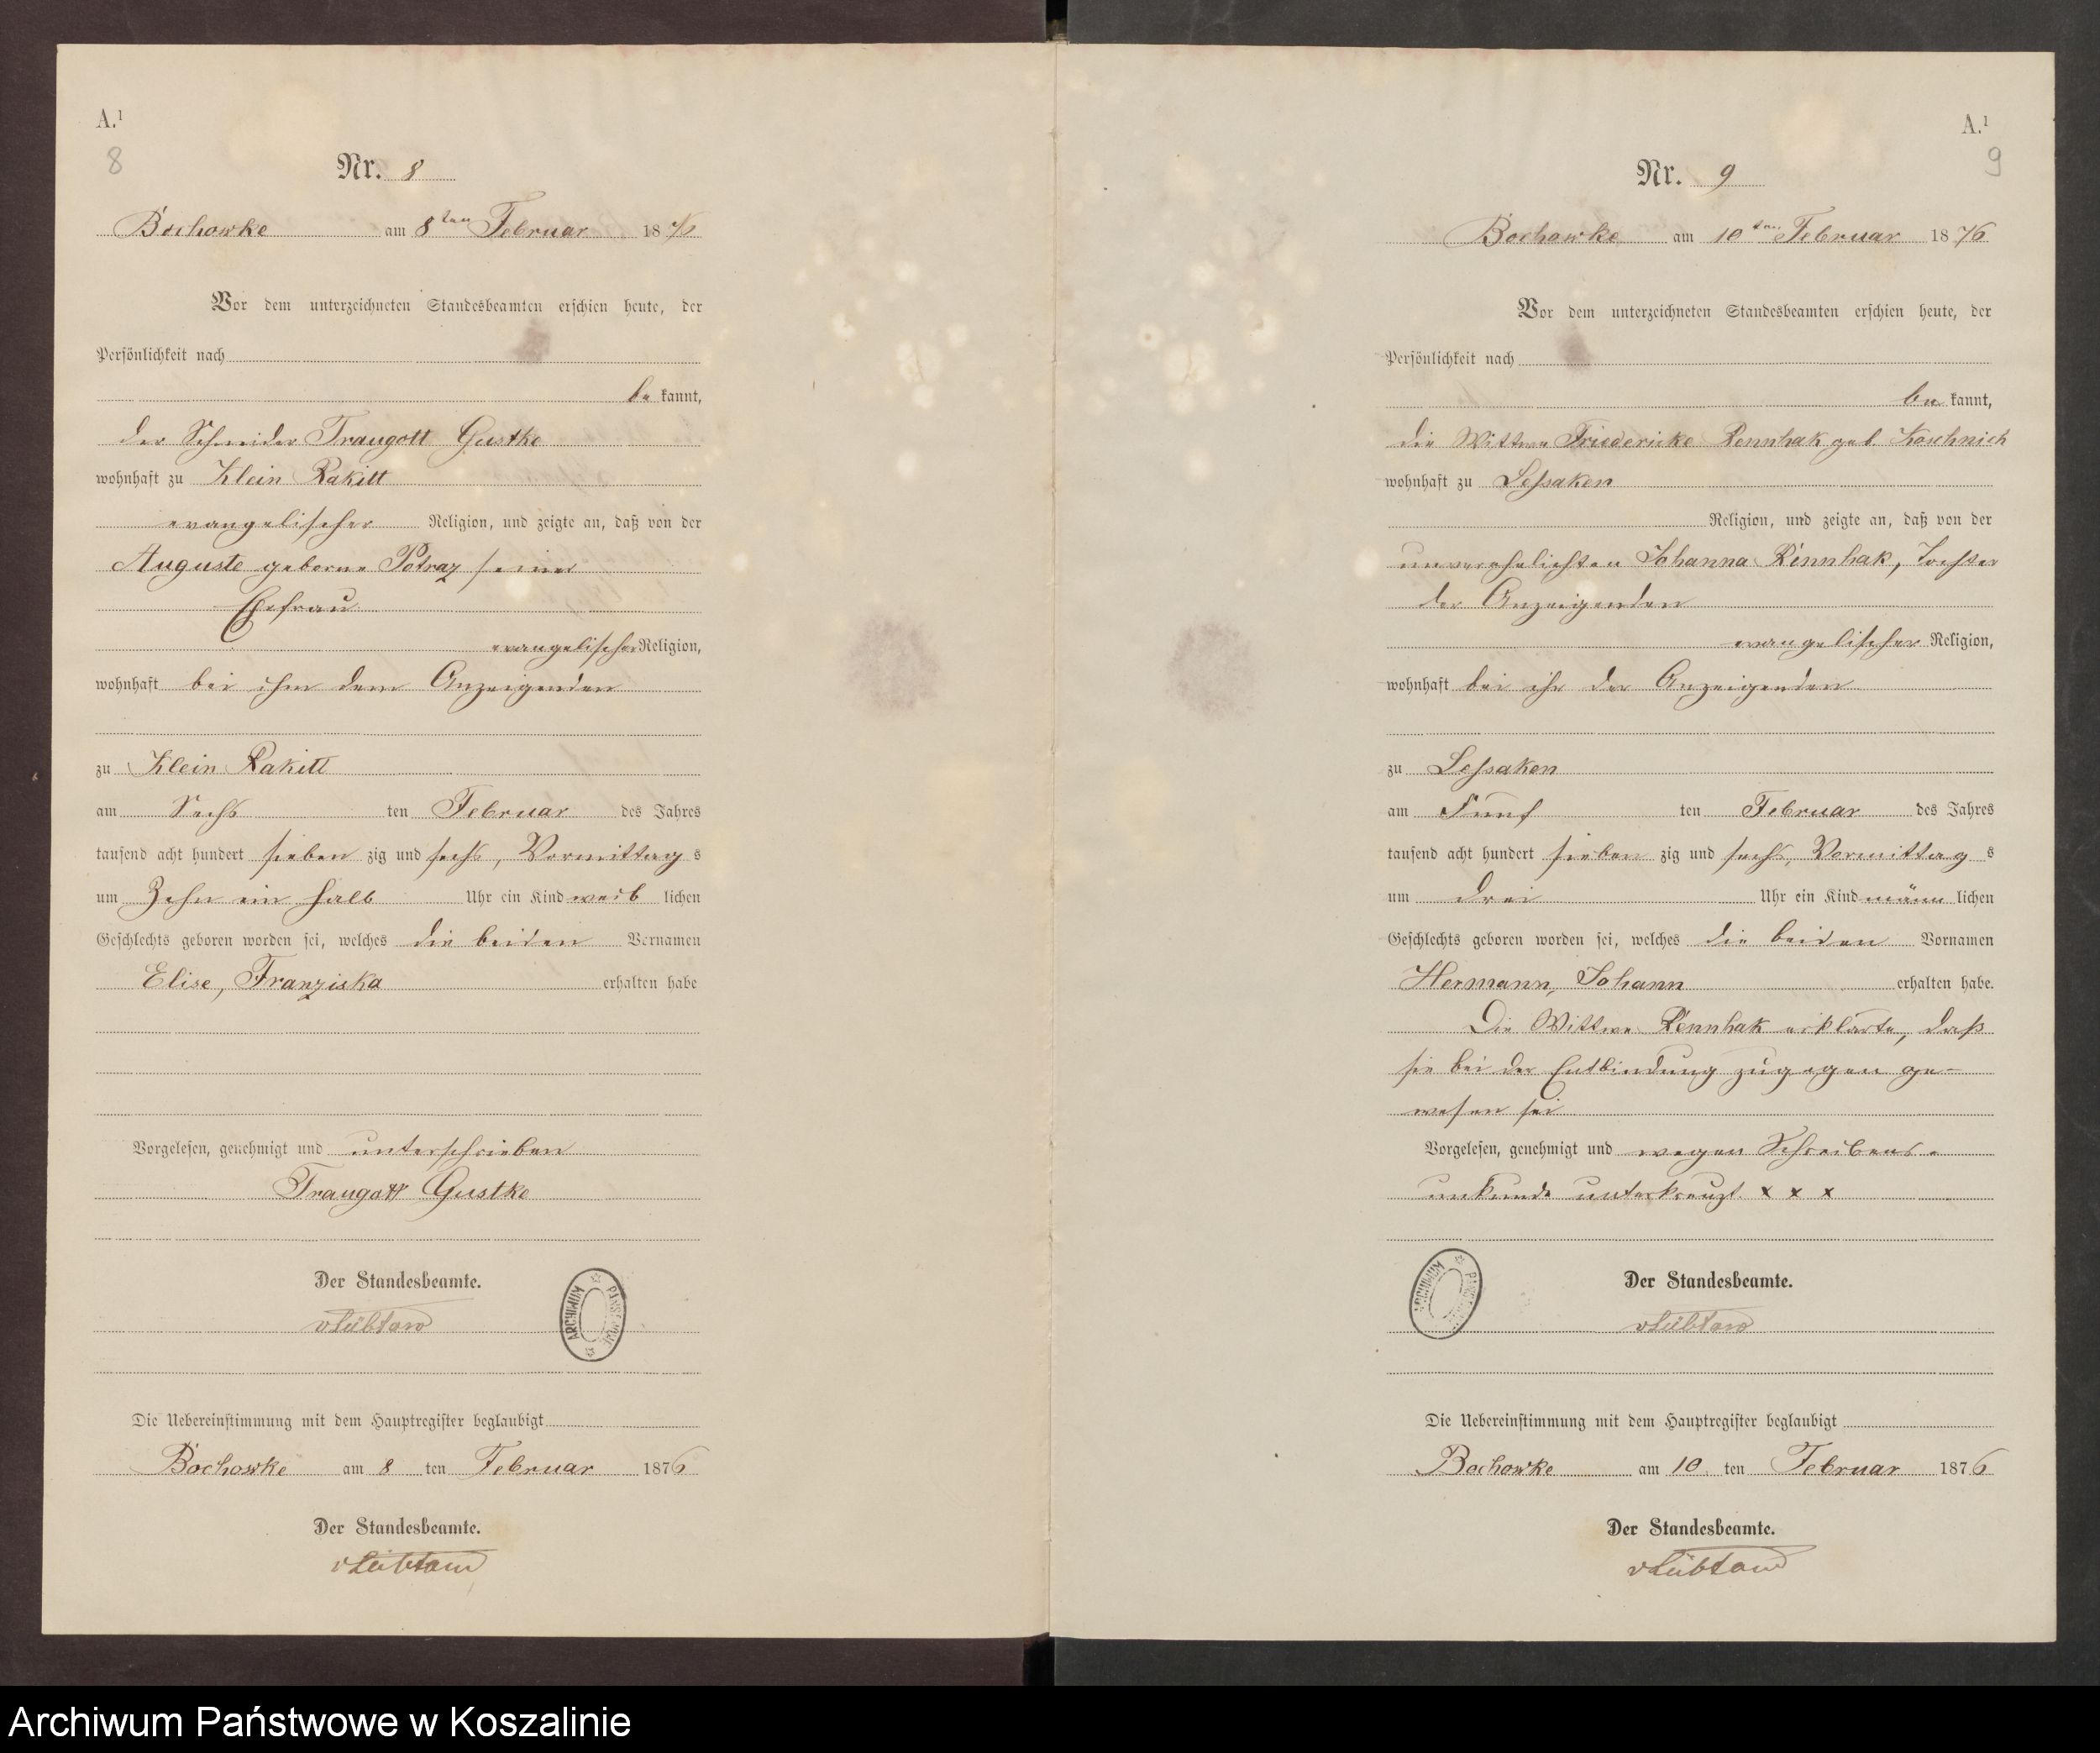 A.¹
8
Nr. 8
Bochowke am 8ten Februar 1876
Vor dem unterzeichneten Standesbeamten erschien heute, der
Persönlichkeit nach
be kannt,
der Schneider Traugott Gustke
wohnhaft zu Klein Rakitt
evangelischer Religion, und zeigte an, daß von der
Auguste geborne Potraz seiner
Ehefrau
evangelischer Religion,
wohnhaft bei ihm dem Anzeigenden
zu Klein Rakitt
am Sechs ten Februar des Jahres
tausend acht hundert sieben zig und sechs, Vormittag s
um Zehn ein halb Uhr ein Kind weib lichen
Geschlechts geboren worden sei, welches die beiden Vornamen
Elise, Franziska erhalten habe
Vorgelesen, genehmigt und unterschrieben
Traugott Gustke
Der Standesbeamte.
vLübtow
ARCHIWUM
Die Uebereinstimmung mit dem Hauptregister beglaubigt
Bochowke am 8 ten Februar 1876
Der Standesbeamte.
vLübtow
A.¹
9
Nr. 9
Bochowke am 10ten Februar 1876
Vor dem unterzeichneten Standesbeamten erschien heute, der
Persönlichkeit nach
be kannt,
die Wittwe Friedericke Rennhak geb. Koschnick
wohnhaft zu Lessaken
Religion, und zeigte an, daß von der
unverehelichten Johanna Rennhak, Tochter
der Anzeigenden
evangelischer Religion,
wohnhaft bei ihr der Anzeigenden
zu Lessaken
am Fünf ten Februar des Jahres
tausend acht hundert sieben zig und sechs, Vormittag s
um drei Uhr ein Kind männ lichen
Geschlechts geboren worden sei, welches die beiden Vornamen
Hermann, Johann erhalten habe.
Die Wittwe Rennhak erklärte, daß
sie bei der Entbindung zugegen ge-
wesen sei
Vorgelesen, genehmigt und wegen Schreibens-
unkunde unterkreuzt. x x x
Der Standesbeamte.
vLübtow
ARCHIWUM
Die Uebereinstimmung mit dem Hauptregister beglaubigt
Bochowke am 10. ten Februar 1876
Der Standesbeamte.
vLübtow
Archiwum Państwowe w Koszalinie